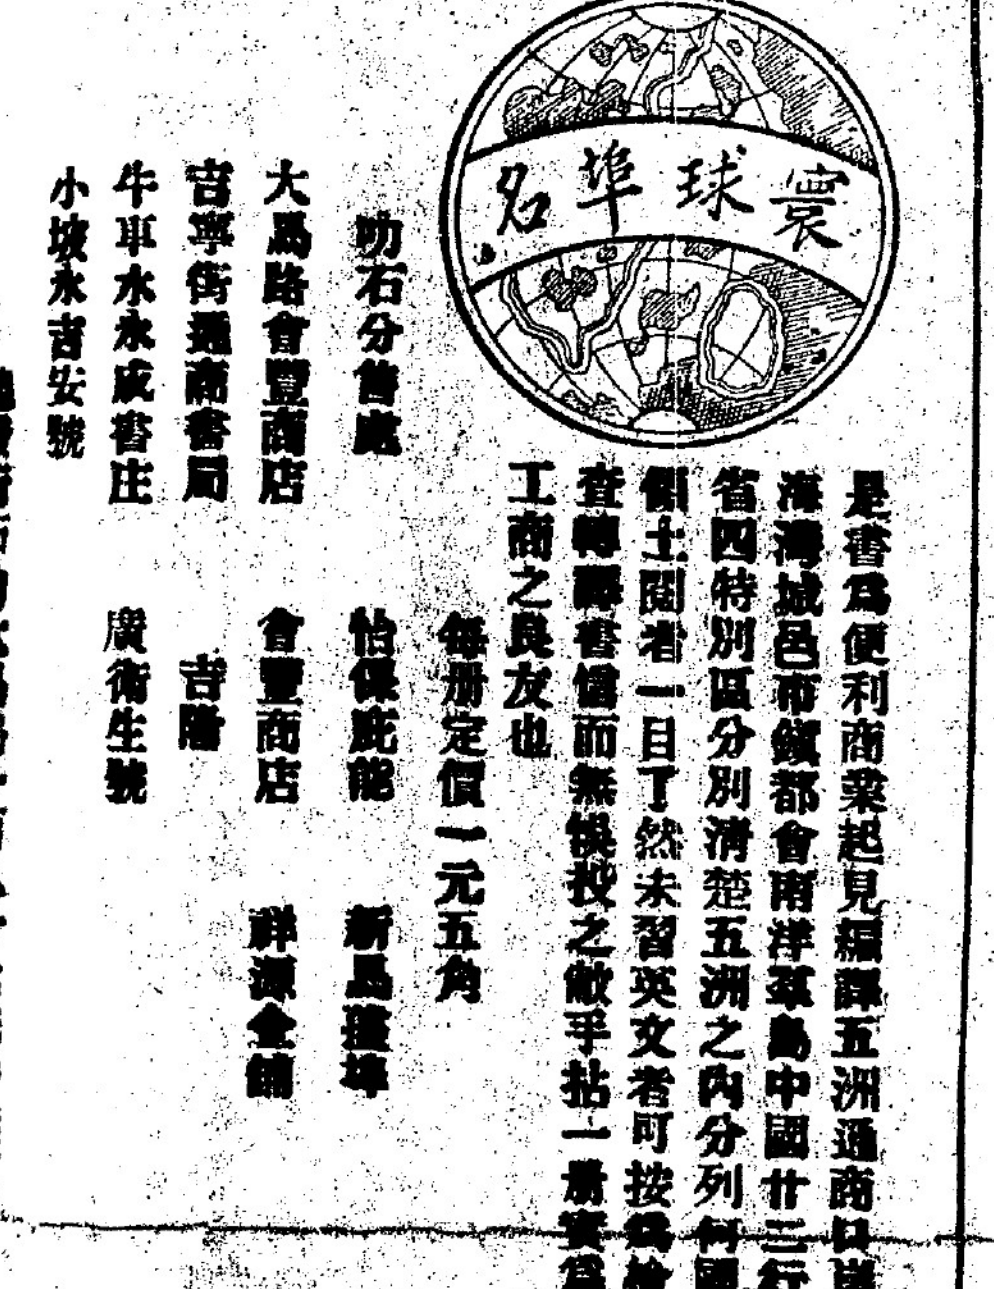 寰球埠名
是書爲便利商業起見編譯五洲通商口岸
海灣城邑市鎮都會南洋羣島中國廿二行
省四特別區分別清楚五洲之內分列何國
屬土閱者一目了然未習英文者可按爲檢
查轉譯書信而無悞投之敝手拈一册實爲
工商之良友也
每册定價一元五角
叻石分售處
大馬路會豐商店
吉寧街通商書局
牛車水永成書庄
小坡永吉安號
怡保庇能
會豐商店
吉隆
廣衛生號
新邑埠
祥源金舖